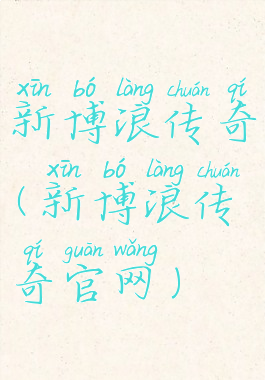 xīn bó làng chuán qí
新博浪传奇
xīn bó làng chuán
(新博浪传
qí guān wǎng
奇官网)